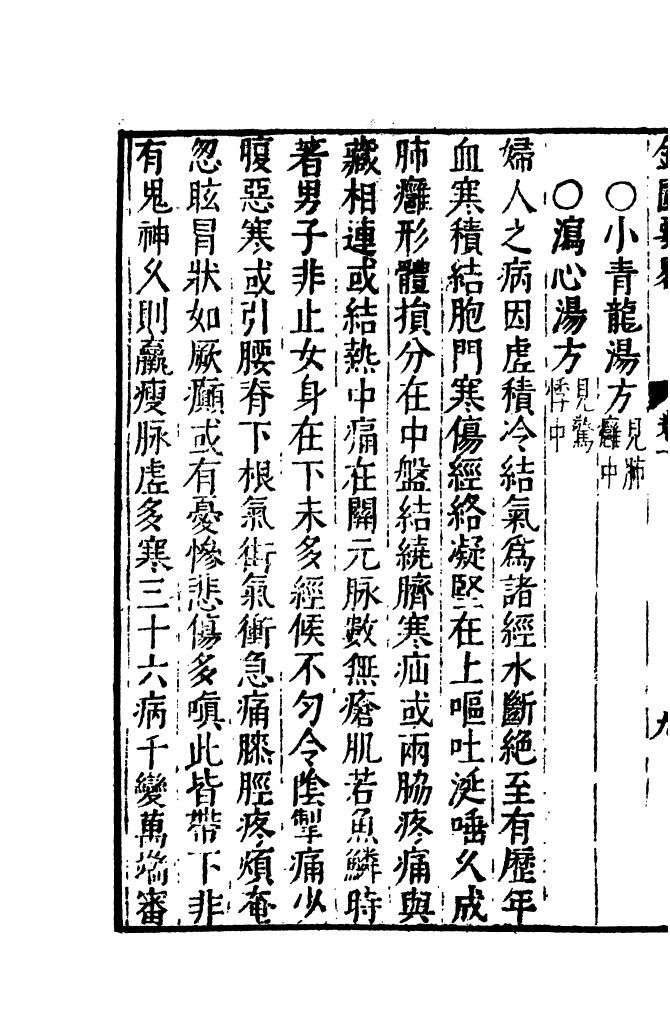 ○小青龍湯方見肺癰中
○瀉心湯方見驚悸中
婦人之病因虛積冷結氣爲諸經水斷絕至有歷年
血寒積結胞門寒傷經絡凝堅在上嘔吐涎唾久成
肺癰形體損分在中盤結繞臍寒疝或兩脇疼痛與
藏相連或結熱中痛在關元脉數無瘡肌若魚鱗時
著男子非止女身在下未多經候不勻令陰掣痛少
腹惡寒或引腰脊下根氣街氣衝急痛膝脛疼煩奄
忽眩冒狀如厥癲或有憂慘悲傷多嗔此皆帶下非
有鬼神久則羸瘦脉虛多寒三十六病千變萬端審